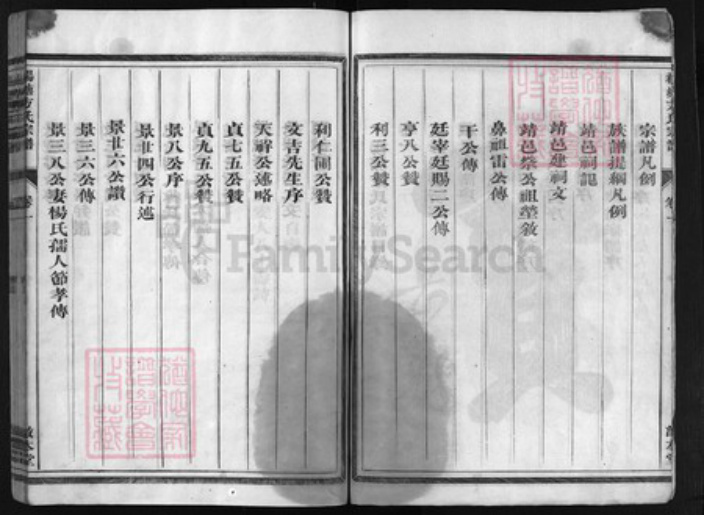 宗譜凡例
族譜提綱凡例
靖邑祠記
靖邑建祠文
靖邑祭公祖塋敘
鼻祖雷公傳
干公傳
廷宰廷賜二公傳
亨八公贊
利三公贊
利仁圃公贊
文吉先生序
天祥公述略
貞七五公贊
貞九五公贊
景八公序
景廿四公行述
景廿六公讚
景三六公傳
景三八公妻楊氏孺人節孝傳
方氏宗譜
卷一
FamilySearch